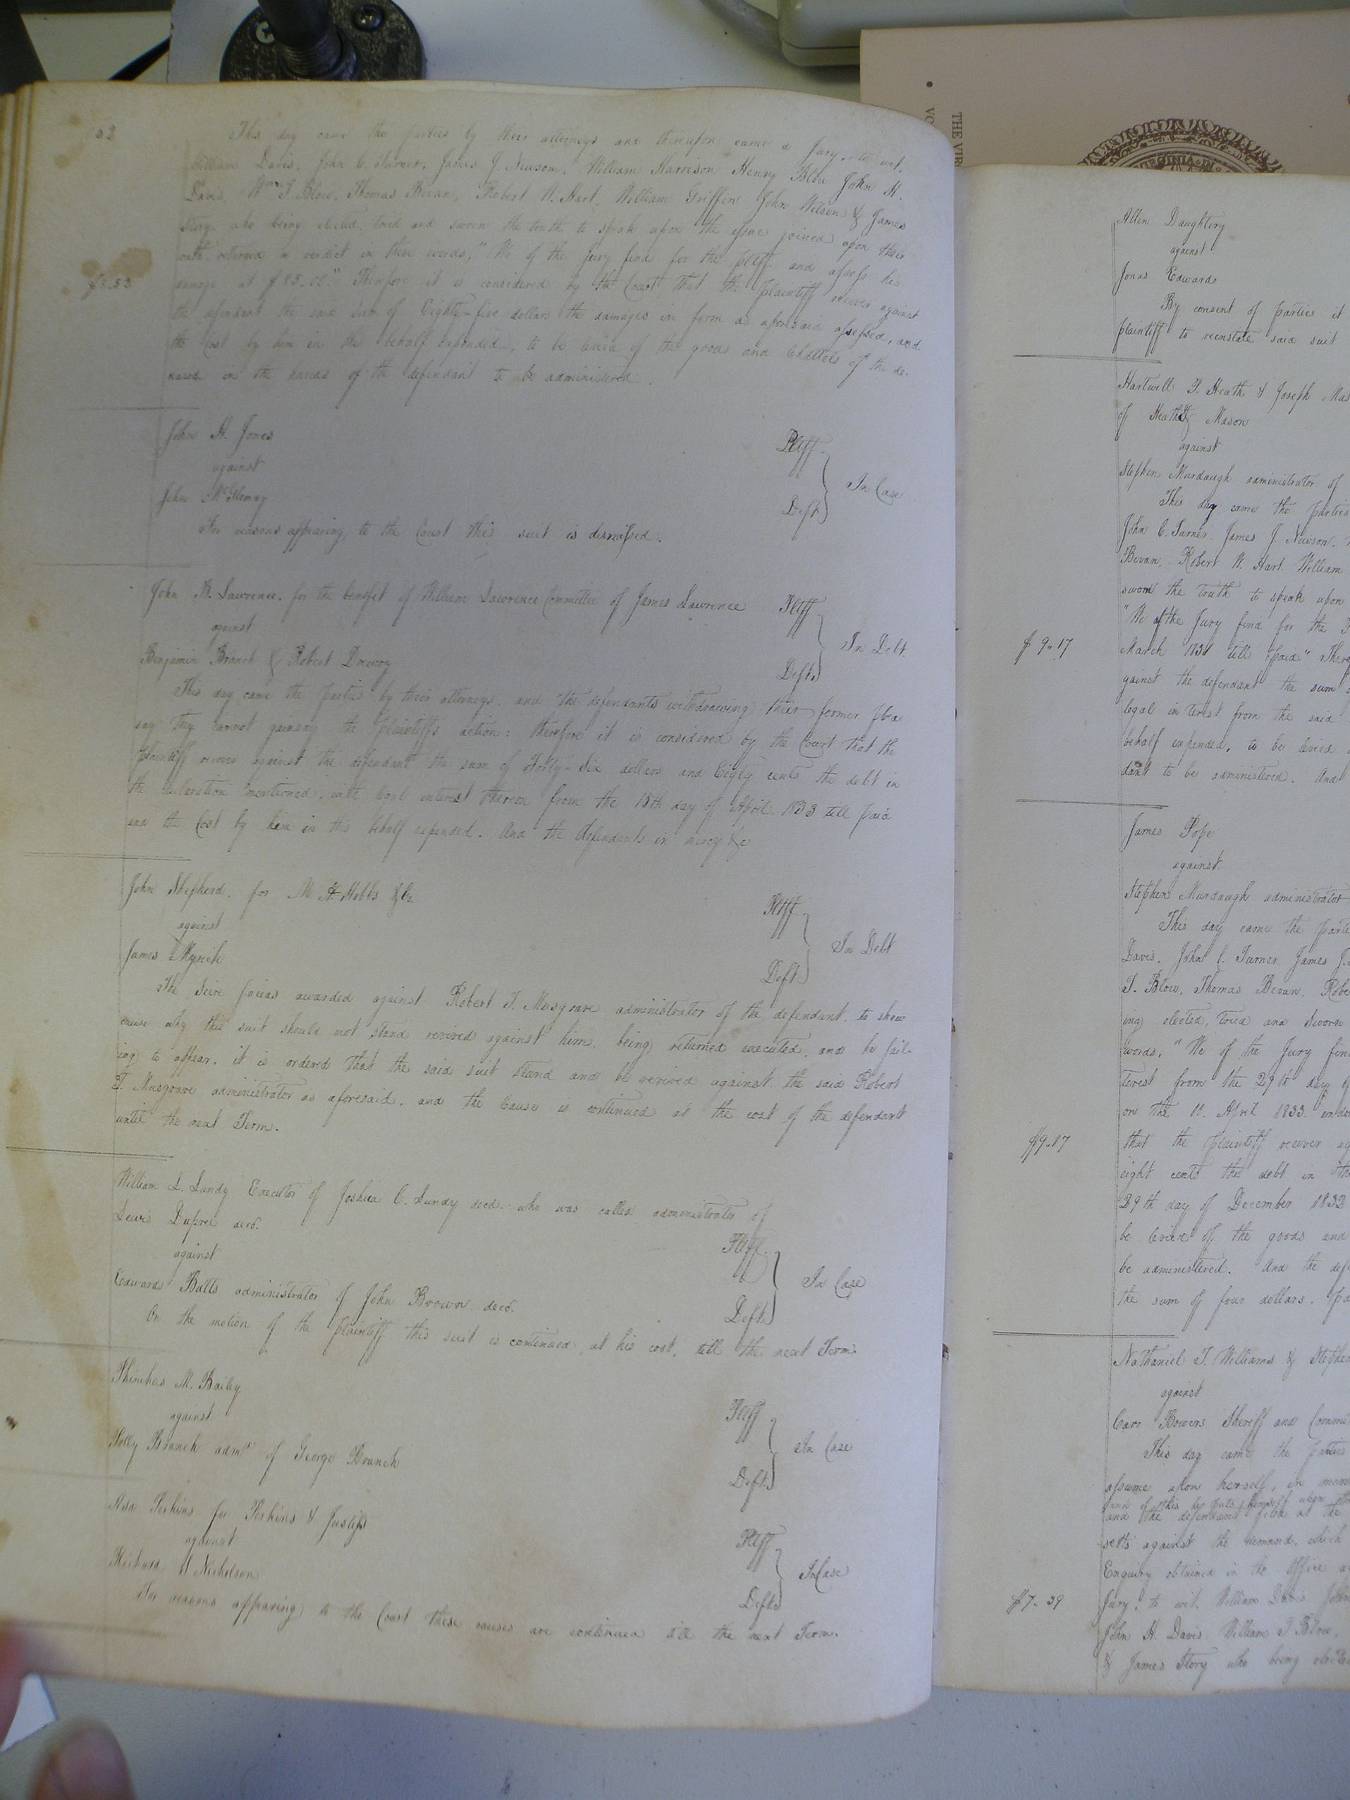 53
This day came the parties by their attorneys and thereupon came a Jury, to wit,
William Davis, John C. Turner, James J. Newsom, William Harrison Henry Blow John H.
Davis, Wm. T. Blow, Thomas Bevan, Robert W. Hart, William Griffin John Wilson & James
Story, who being elected, tried and sworn the truth to speak upon the issue joined upon their
oath returned a verdict in these words, "We of the Jury find for the pltff. and assess his
$8.53
damage at $85.00." Therefore it is considered by the Court that the plaintiff recover against
the defendant the said sum of Eighty-five dollars the damages in form as aforesaid assessed, and
the Cost by him in this behalf expended, to be levied of the goods and Chattels of the de-
ceased in the hands of the defendant to be administered.
John H. Jones Pltff.
against In Case
John McHenry Deft.
For reasons appearing to the Court this suit is dismissed.
John R. Lawrence, for the benefit of William Lawrence Committee of James Lawrence Pltff
against In Debt.
Benjamin Branch & Robert Drewry Defts
This day came the parties by their attorneys, and the defendants withdrawing their former plea
say they cannot gainsay the plaintiff's action: therefore it is considered by the Court that the
plaintiff recover against the defendant the sum of Forty-Six dollars and Eighty cents the debt in
the declaration mentioned, with legal interest thereon from the 15th day of April, 1833 till paid
and the Cost by him in this behalf expended. And the defendants in mercy &c
John Shepherd, for M. H. Hobbs & Co. Pltff.
against In Debt
James D Myrick Deft
The Scire facias awarded against Robert T. Musgrave administrator of the defendant, to show
cause why this suit should not stand revived against him, being returned executed, and he fail-
ing to appear, it is ordered that the said suit stand and be revived against the said Robert
T. Musgrave administrator as aforesaid, and the Cause is continued at the cost of the defendant
until the next Term.
William L. Lundy Executor of Joshua C. Lundy decd. who was called administrator of
Lewis Dupree decd. Pltff.
against In Case
Edward Butts administrator of John Brown decd. Deft.
On the motion of the plaintiff this suit is continued, at his cost, till the next Term.
Phinehas M. Bailey Pltff
against In Case
Polly Branch admx. of George Branch Deft.
Asa Perkins for Perkins & Pltff
against In Case
Richard Nicholson Deft.
For reasons appearing to the Court these causes are continued till the next Term.
Allen Daughtry
against
Jonas Edwards
By consent of parties it
plaintiff to reinstate said suit
Hartwell P. Heath & Joseph Mas
of Heath & Mason
against
Stephen Murdaugh administrator of
This day came the parties
John C. Turner, James J. Newsom,
Bevan, Robert W. Hart, William
sworn the truth to speak upon
"We of the Jury find for the
$9.17
March 1831 till paid." There
gainst the defendant the sum
legal interest from the said
behalf expended, to be levied
dant to be administered. And
James Pope
against
Stephen Murdaugh administrator
This day came the parti
Davis, John C. Turner James J.
T. Blow, Thomas Bevan, Rober
ing elected, tried and sworn
words, "We of the Jury fin
terest from the 29th day of
on the 10. April 1833.
$9.17
that the plaintiff recover ag
eight cents the debt in the
29th day of December 1832
be levied of the goods and
be administered. And the def
the sum of four dollars.
Nathaniel T. Williams & Stephen
against
Carr Bowers Sheriff and Commi
This day came the parties
assume upon herself, in man
and of this he puts himself upon the
and the defendant filed at the
setts against the demand, which
Enquiry obtained in the Office
$7.39
Jury, to wit, William Davis John
John H. Davis, William T. Blow,
& James Story, who being elected
THE VIR
VIRGINIA